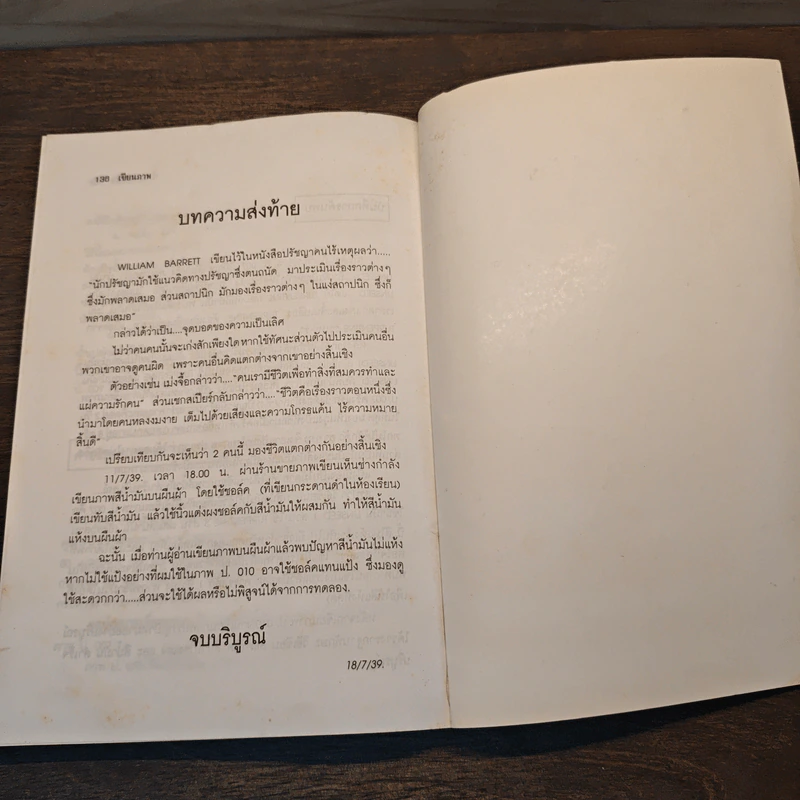 136 เขียนภาพ
บทความส่งท้าย
WILLIAM BARRETT เขียนไว้ในหนังสือปรัชญาคนไร้เหตุผลว่า.....
"นักปรัชญามักใช้แนวคิดทางปรัชญาซึ่งตนถนัด มาประเมินเรื่องราวต่างๆ
ซึ่งมักพลาดเสมอ ส่วนสถาปนิก มักมองเรื่องราวต่างๆ ในแง่สถาปนิก ซึ่งก็
พลาดเสมอ"
กล่าวได้ว่าเป็น....จุดบอดของความเป็นเลิศ
ไม่ว่าคนคนนั้นจะเก่งสักเพียงใดหากใช้ทัศนะส่วนตัวไปประเมินคนอื่น
พวกเขาอาจดูคนผิด เพราะคนอื่นคิดแตกต่างจากเขาอย่างสิ้นเชิง
ตัวอย่างเช่น เม่งจื๊อกล่าวว่า...."คนเรามีชีวิตเพื่อทำสิ่งที่สมควรทำและ
แผ่ความรักคน" ส่วนเชกสเปียร์กลับกล่าวว่า...."ชีวิตคือเรื่องราวตอนหนึ่งซึ่ง
นำมาโดยคนหลงงมงาย เต็มไปด้วยเสียงและความโกรธแค้น ไร้ความหมาย
สิ้นดี"
เปรียบเทียบกันจะเห็นว่า 2 คนนี้ มองชีวิตแตกต่างกันอย่างสิ้นเชิง
11/7/39. เวลา 18.00 น. ผ่านร้านขายภาพเขียนเห็นช่างกำลัง
เขียนภาพสีน้ำมันบนผืนผ้า โดยใช้ชอล์ค (ที่เขียนกระดานดำในห้องเรียน)
เขียนทับสีน้ำมัน แล้วใช้นิ้วแต่งผงชอล์คกับสีน้ำมันให้ผสมกัน ทำให้สีน้ำมัน
แห้งบนผืนผ้า
ฉะนั้น เมื่อท่านผู้อ่านเขียนภาพบนผืนผ้าแล้วพบปัญหาสีน้ำมันไม่แห้ง
หากไม่ใช้แป้งอย่างที่ผมใช้ในภาพ ป. 010 อาจใช้ชอล์คแทนแป้ง ซึ่งมองดู
ใช้สะดวกกว่า.....ส่วนจะใช้ได้ผลหรือไม่พิสูจน์ได้จากการทดลอง.
จบบริบูรณ์
18/7/39.